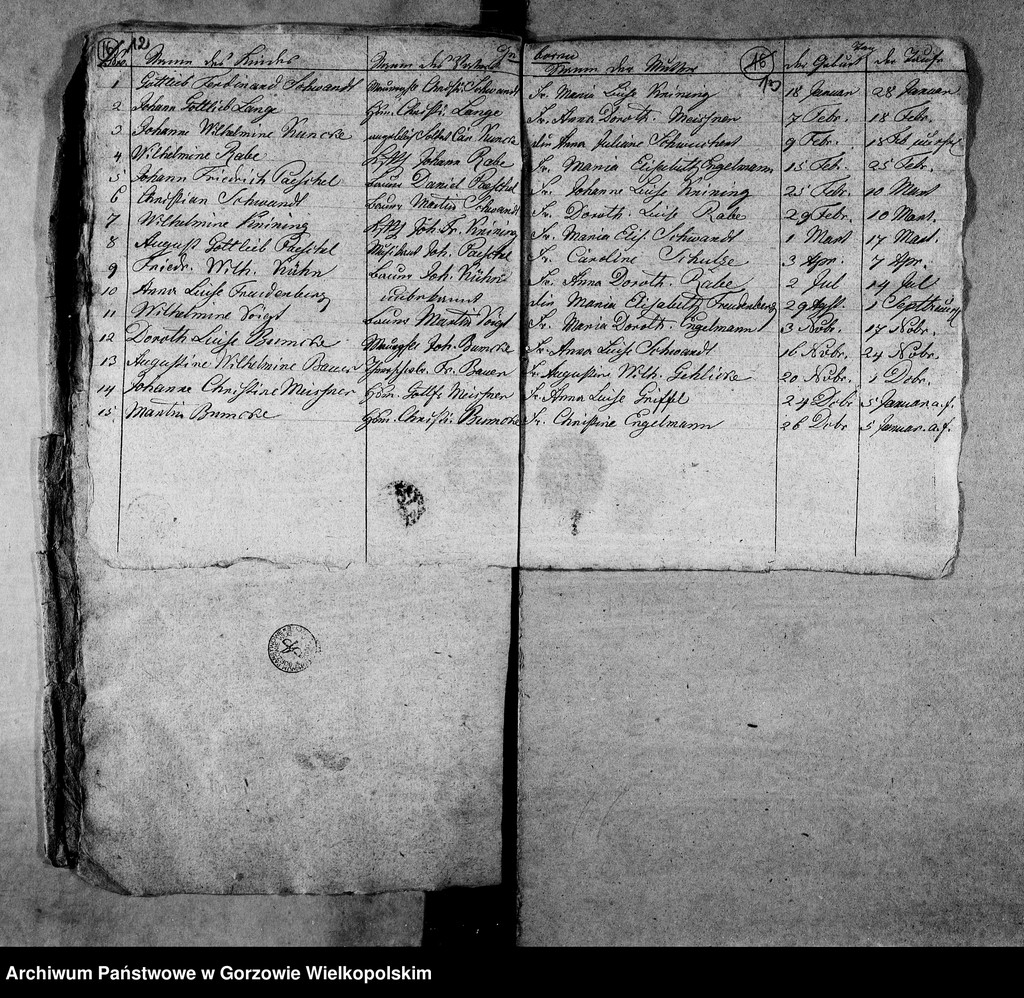 16 12
Geborne
16
13
Nro. Namen des Kindes Namen des Vaters Namen der Mutter Tag der Geburt der Taufe
1 Gottlieb Ferdinand Schwandt Christ. Schwandt Fr. Maria Luise Krining 18 Januar 28 Januar
2 Johann Gottlieb Lange Christ. Lange Fr. Anna Doroth. Meissner 7 Febr. 18 Febr.
3 Johanne Wilhelmine Kuncke Kuncke Anna Juliane 9 Febr. 18 Feb
4 Wilhelmine Rabe Johann Rabe Fr. Maria Elisabeth Engelmann 15 Feb. 25 Febr.
5 Johann Friedrich Paeschel Bauer Daniel Paeschel Fr. Johanne Luise Krining 25 Febr. 10 Mart
6 Christian Schwandt Bauer Martin Schwandt Fr. Doroth. Luise Rabe 29 Febr. 10 Mart.
7 Wilhelmine Krining Joh. Fr. Krining Fr. Maria Elis. Schwandt 1 Mart 17 Mart.
8 August Gottlieb Paeschel Musikant Joh. Paeschel Fr. Caroline Schulze 3 Apr. 7 Apr.
9 Friedr. Wilh. Kühn Bauer Joh. Kühn Fr. Anna Doroth. Rabe 2 Jul 14 Jul
10 Anna Luise Freudenberg unbekannt Maria Elisabeth Freudenberg 29 Agst. 1
11 Wilhelmine Voigt Bauer Martin Voigt Fr. Maria Doroth. Engelmann 3 Nobr. 17 Nobr.
12 Doroth Luise Bumcke Joh. Bumcke Fr. Anna Luise Schwandt 16 Nobr. 24 Nobr.
13 Augustine Wilhelmine Bauer Fr. Bauer Fr. Augustine Wilh. Gehlicke 20 Nobr. 1 Debr.
14 Johanne Christine Meissner Gottf. Meissner Fr. Anna Luise Griffel 24 Debr 5 Januar a. f.
15 Martin Bumcke Christ. Bumcke Fr. Christine Engelmann 26 Debr 5 Januar. a. f.
Archiwum Państwowe w Gorzowie Wielkopolskim